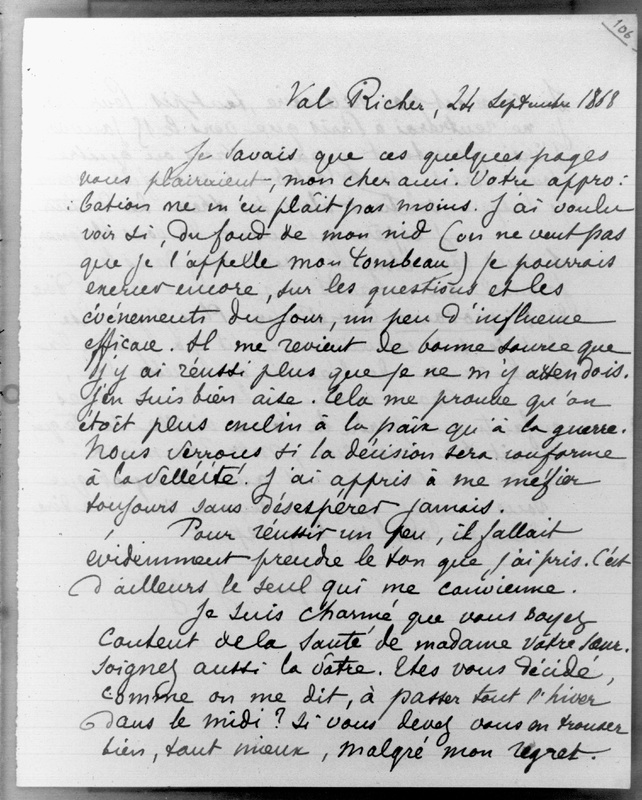 106
Val Richer, 24 septembre 1868
Je savais que ces quelques pages
vous plairaient, mon cher ami. Votre appro:
:bation ne m'en plait pas moins. J'ai voulu
voir si, du fond de mon nid (on ne veut pas
que je l'appelle mon tombeau) je pourrais
exercer encore, sur les questions et les
événements du jour, un peu d'influence
efficace. Il me revient de bonne source que
j'y ai réussi plus que je ne m'y attendois.
J'en suis bien aise. Cela me prouve qu'on
étoit plus enclin à la paix qu'à la guerre.
Nous verrons si la décision sera conforme
à la velléité. J'ai appris à me méfier
toujours sans désespérer jamais.
Pour réussir un peu, il fallait
évidemment prendre le ton que j'ai pris. C'est
d'ailleurs le seul qui me convienne.
Je suis charmé que vous soyez
content de la santé de madame votre sœur.
Soignez aussi la vôtre. Etes vous décidé,
comme on me dit, à passer tout l'hiver
dans le midi? Si vous devez vous en trouver
bien, tant mieux, malgré mon regret.